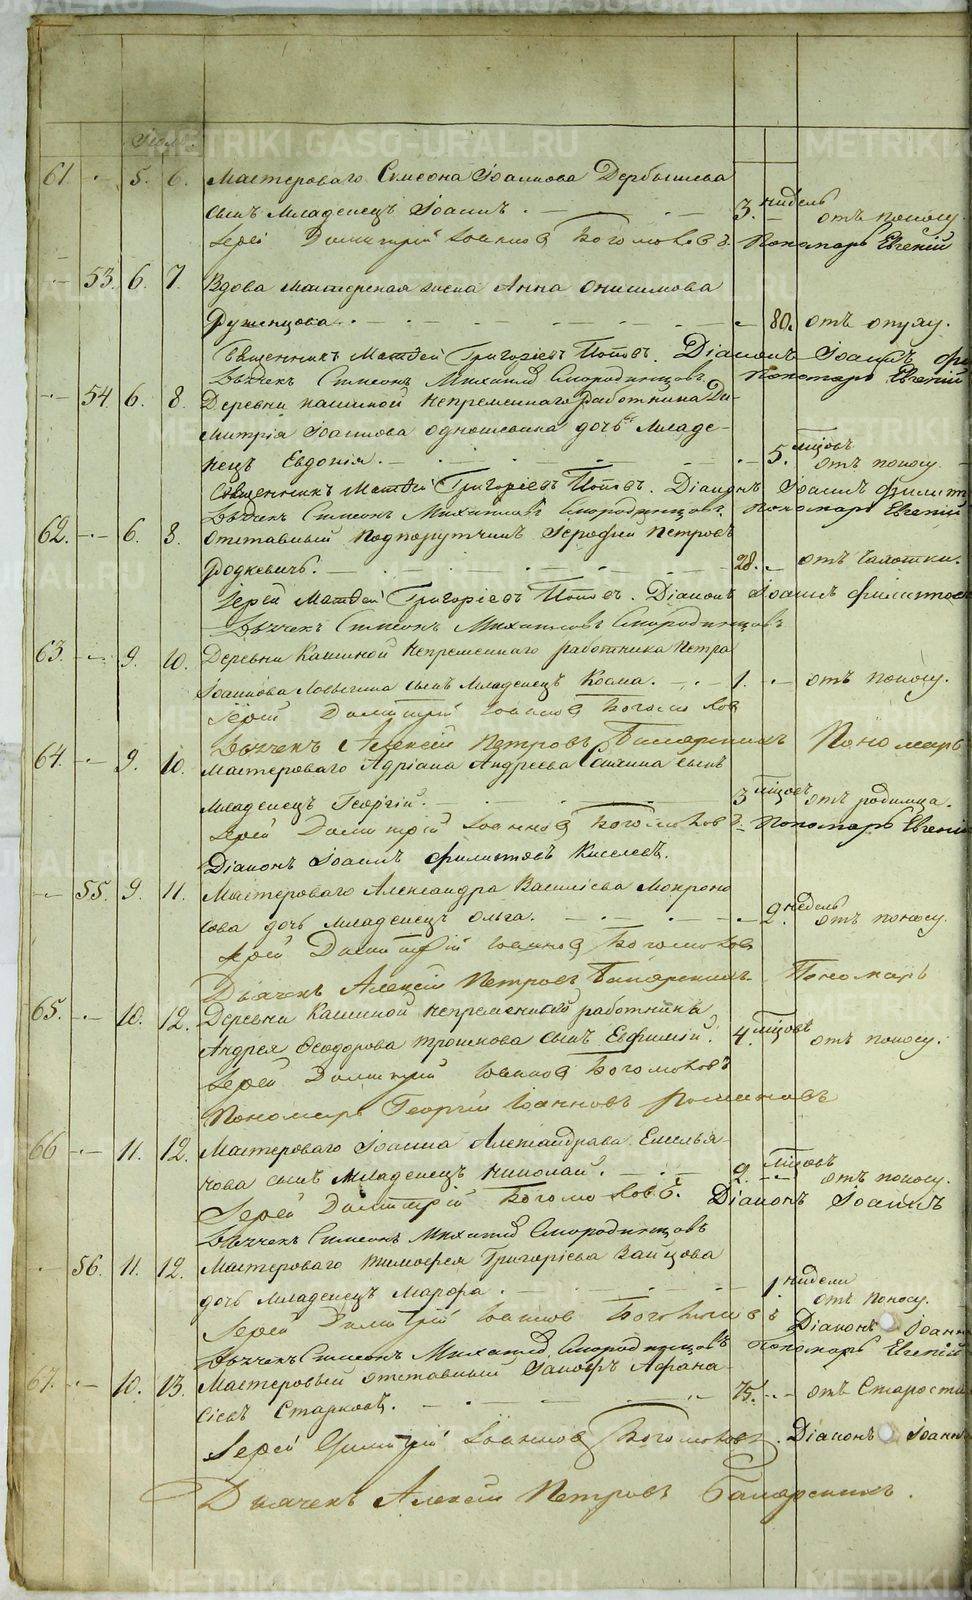 Іюль.
61. 5. 6. Мастероваго Симеона Іоаннова Дербышева
сынъ младенецъ Іоаннъ. 3. недель отъ поносу.
Іерей Димитрій Іоанновъ Богомоловъ. Пономарь Евгеній
53. 6. 7. Вдова мастерская жена Анна Онисимова
80. отъ опуху.
Священникъ Матѳей Григоріевъ Поповъ. Діаконъ Іоаннъ
Дьячекъ Симеонъ Михаиловъ Смородинцовъ. Пономарь Евгеній
54. 6. 8. Деревни Кашиной непременнаго работника Ди-
митрія Іоаннова Одношевина дочь младе-
нецъ Евдокія. 5. мцовъ отъ поносу.
Священникъ Матѳей Григоріевъ Поповъ. Діаконъ Іоаннъ Филит
Дьячекъ Симеонъ Михаиловъ Смородинцовъ. Пономарь Евгеній
62. 6. 8. Отставный подпорутчикъ Іерофей Петровъ
Родкевичь. 28. отъ чахотки.
Іерей Матѳей Григоріевъ Поповъ. Діаконъ Іоаннъ Филитов
Дьячекъ Симеонъ Михаиловъ Смородинцовъ
63. 9. 10. Деревни Кашиной непременнаго работника Петра
Іоаннова сынъ младенецъ Козма. 1. отъ поносу.
Іерей Димитрій Іоанновъ Богомолов
Дьячекъ Алексій Петровъ Пономарь
64. 9. 10. Мастероваго Адріана Андреева сынъ
младенецъ Георгій. 3 мцовъ отъ родимца.
Іерей Димитрій Іоанновъ Богомоловъ. Пономарь Евгеній
Діаконъ Іоаннъ Филитовъ Киселевъ.
55. 9. 11. Мастероваго Александра Василіева Мокроно
сова дочь младенецъ Ольга. 2. недель отъ поносу.
Іерей Димитрій Іоанновъ Богомолов
Дьячекъ Алексій Петровъ Пономарь
65. 10. 12. Деревни Кашиной непременнаго работника
Андрея Ѳеодорова Трошкова сынъ Евфимій. 4. мцовъ отъ поносу.
Іерей Димитрій Іоанновъ Богомоловъ
Пономарь Георгій Іоанновъ
66 11. 12. Мастероваго Іоанна Александрова Емелья-
нова сынъ младенецъ Николай. 2. мцовъ отъ поносу.
Іерей Димитрій Богомоловъ. Діаконъ Іоаннъ
Дьячекъ Симеонъ Михаиловъ Смородинцовъ
56. 11. 12. Мастероваго Тимоѳея Григоріева Вайцова
дочь младенецъ Марѳа. 1. недели отъ поносу.
Іерей Димитрій Іоанновъ Богомоловъ Діаконъ Іоанн
Дьячекъ Симеонъ Михаиловъ Смородинцовъ Пономарь Евгеній
67. 10. 13. Мастеровый отставный Іакофъ Афана-
сіевъ Старковъ. 75. отъ Старости
Іерей Димитрій Іоанновъ Богомоловъ. Діаконъ Іоанн
Дьячекъ Алексій Петровъ